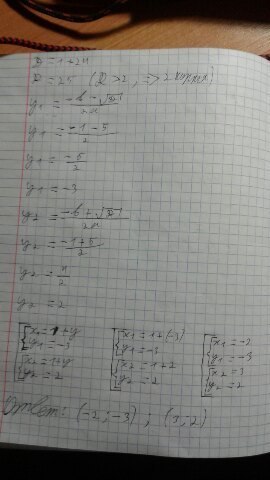 D = 1+24
D = 25 (D > 2, => 2 корня)
y₁ = (-b - √D)/2a
y₁ = (-1-5)/2
y₁ = -6/2
y₁ = -3
y₂ = (-b + √D)/2a
y₂ = (-1+5)/2
y₂ = 4/2
y₂ = 2
[{x₁ = 1+y [{x₁ = 1+(-3) [{x₁ = -2
y₁ = -3 y₁ = -3 y₁ = -3
{x₂ = 1+y {x₂ = 1+2 {x₂ = 3
y₂ = 2 y₂ = 2 y₂ = 2
Ответ: (-2; -3) ; (3; 2)